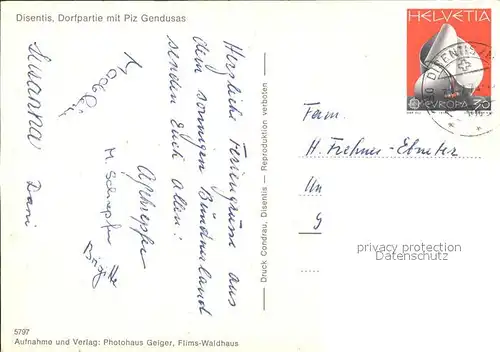 Disentis, Dorfpartie mit Piz Gendusas
Herzliche Feriengrüsse aus
dem sonnigen Bündnerland
senden Euch Allen:
M. Schrepfer
Susanna
Dani
5797
Aufnahme und Verlag: Photohaus Geiger, Flims-Waldhaus
Druck Condrau, Disentis — Reproduktion verboten
HELVETIA
EUROPA 30
DISENTIS
Fam.
H. Frehner-Ebneter
privacy protection
Datenschutz